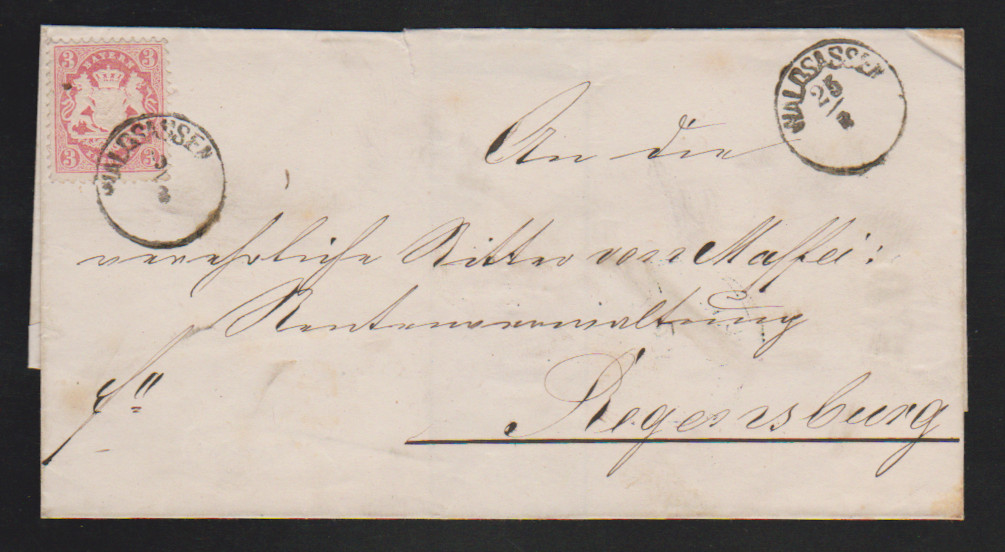 3 BAYERN 3
3 3
WALDSASSEN
WALDSASSEN
25/
An die
verehrliche Ritter von Maffei:
Rentenverwaltung
Regensburg